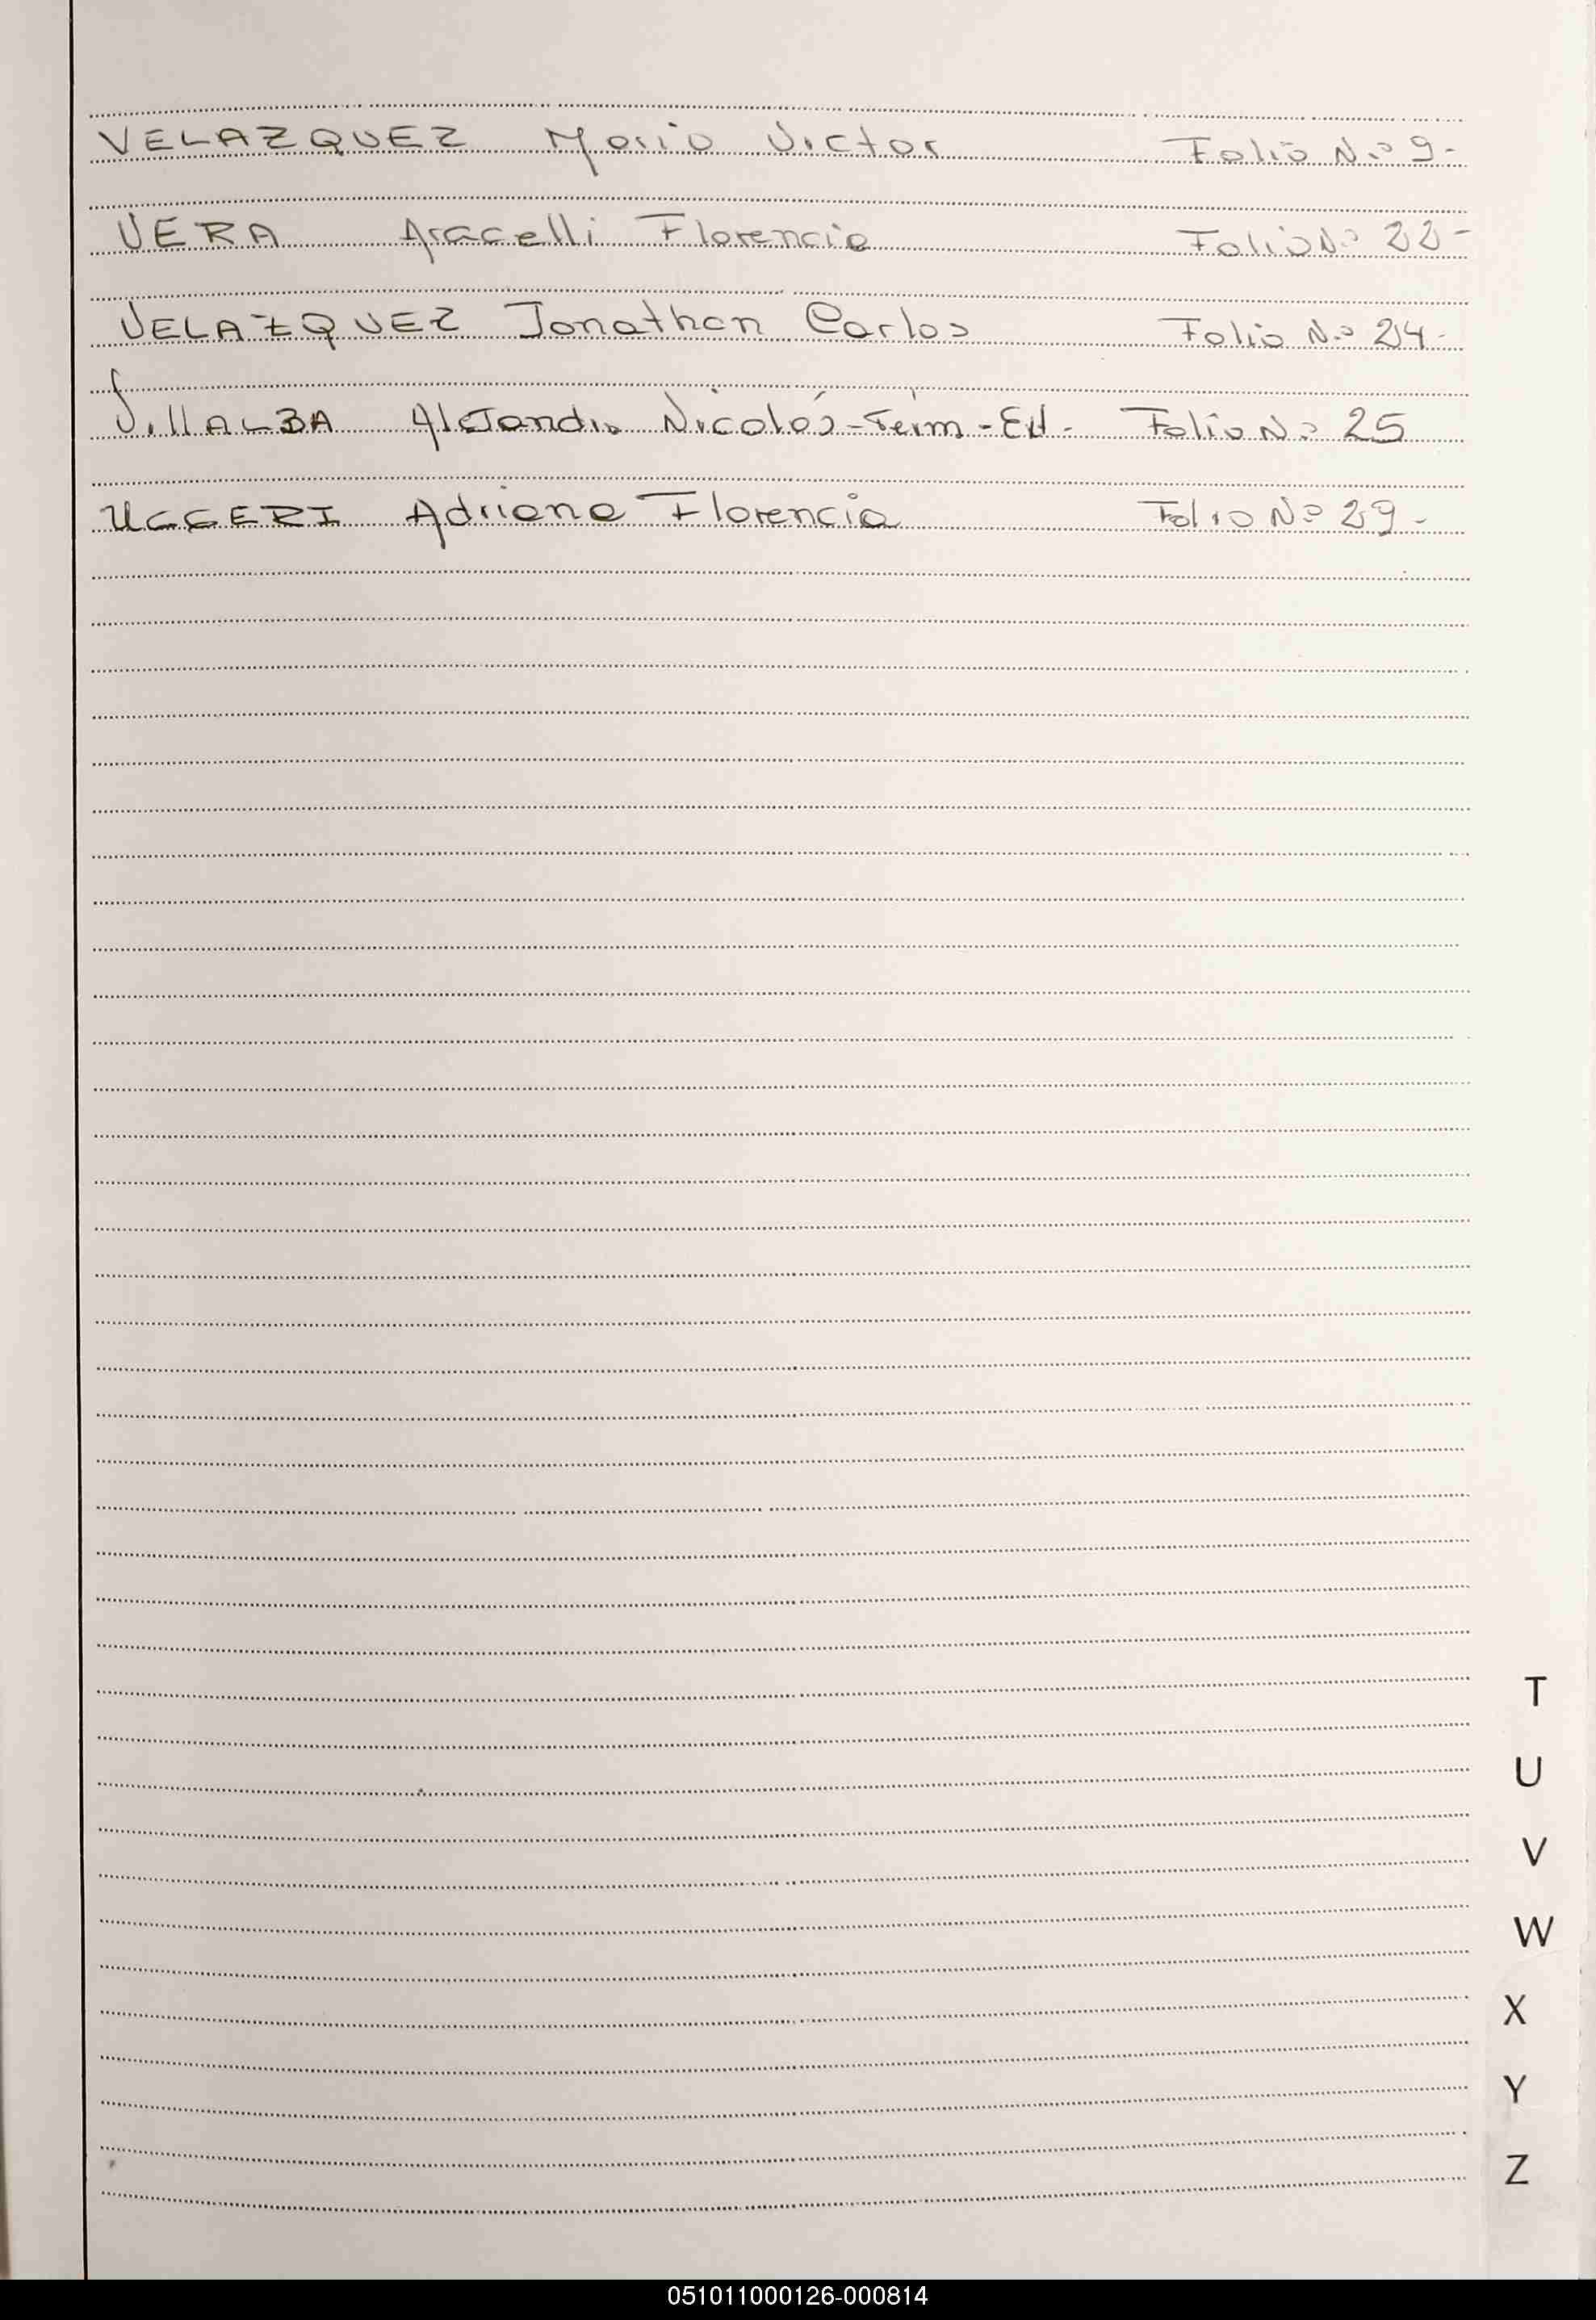 VELAZQUEZ Mario Victor Folio N.º 9-
VERA Aracelli Florencia Folio Nº 22-
VELAZQUEZ Jonathan Carlos Folio N.º 24-
VillALBA Alejandro Nicolás - - Folio N.º 25
UGGERI Adriana Florencia Folio Nº 29-
T
U
V
W
X
Y
Z
051011000126-000814